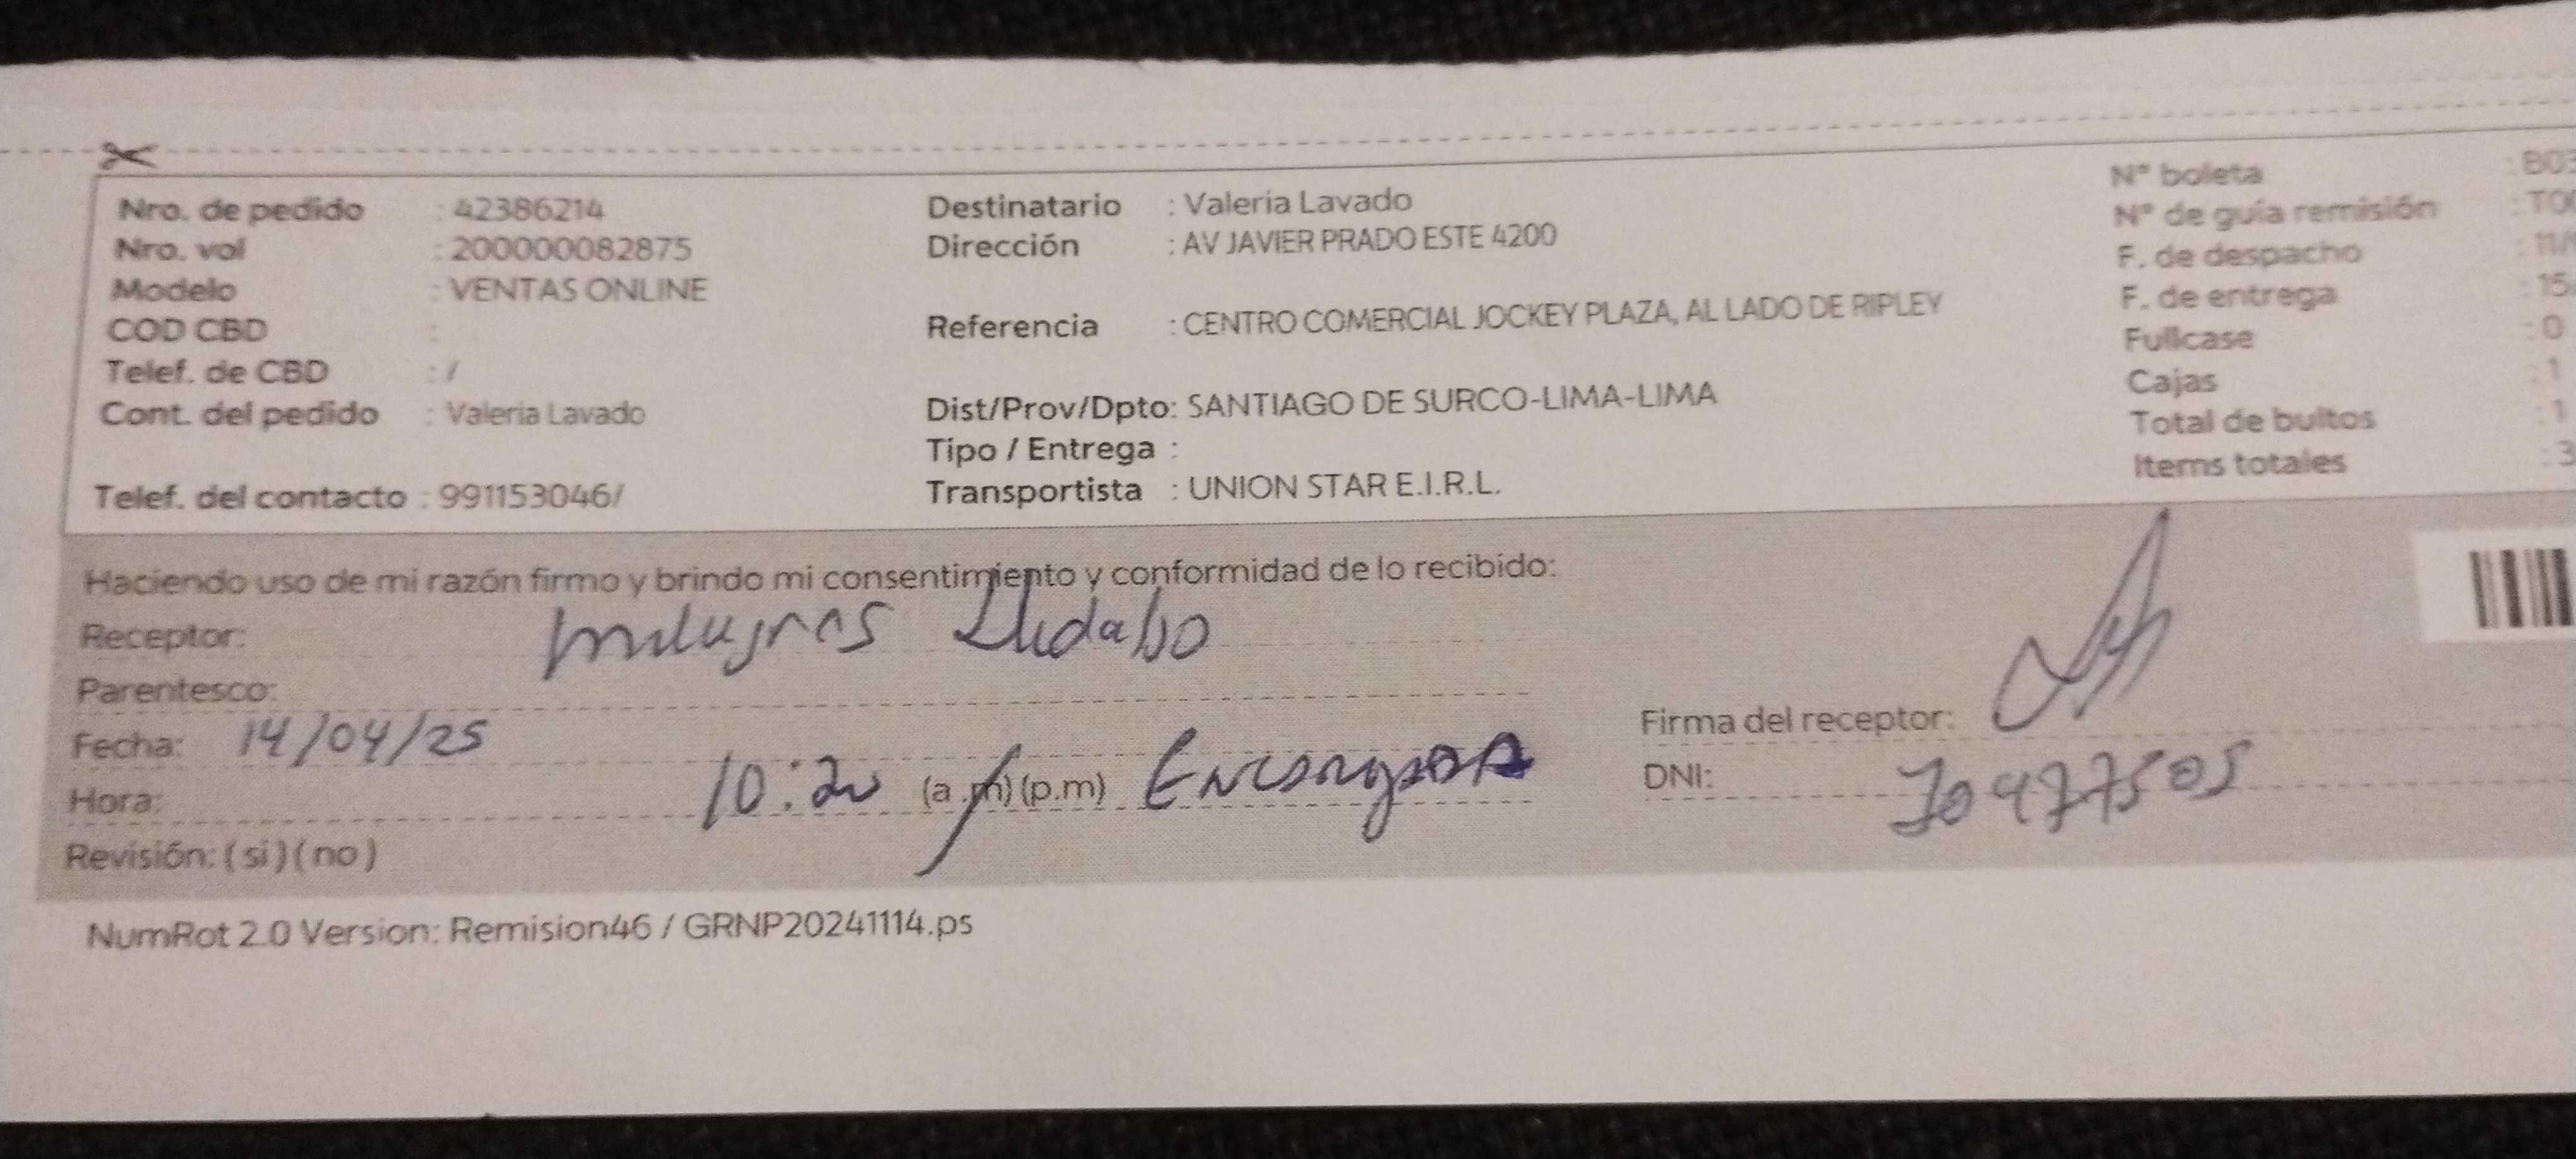 Nro. de pedido : 42386214
Nro. vol : 200000082875
Modelo : VENTAS ONLINE
COD CBD :
Telef. de CBD : /
Cont. del pedido : Valeria Lavado
Telef. del contacto : 991153046/
Destinatario : Valeria Lavado
Dirección : AV JAVIER PRADO ESTE 4200
Referencia : CENTRO COMERCIAL JOCKEY PLAZA, AL LADO DE RIPLEY
Dist/Prov/Dpto: SANTIAGO DE SURCO-LIMA-LIMA
Tipo / Entrega :
Transportista : UNION STAR E.I.R.L.
N° boleta : B03
N° de guía remisión : T00
F. de despacho : 11/
F. de entrega : 15
Fullcase : 0
Cajas : 1
Total de bultos : 1
Items totales : 3
Haciendo uso de mi razón firmo y brindo mi consentimiento y conformidad de lo recibido:
Receptor: milagros
Parentesco:
Fecha: 14/04/25
Hora: 10:20 (a.m) (p.m) Encargada
Revisión: ( si ) ( no )
Firma del receptor:
DNI: 70477505
NumRot 2.0 Version: Remision46 / GRNP20241114.ps